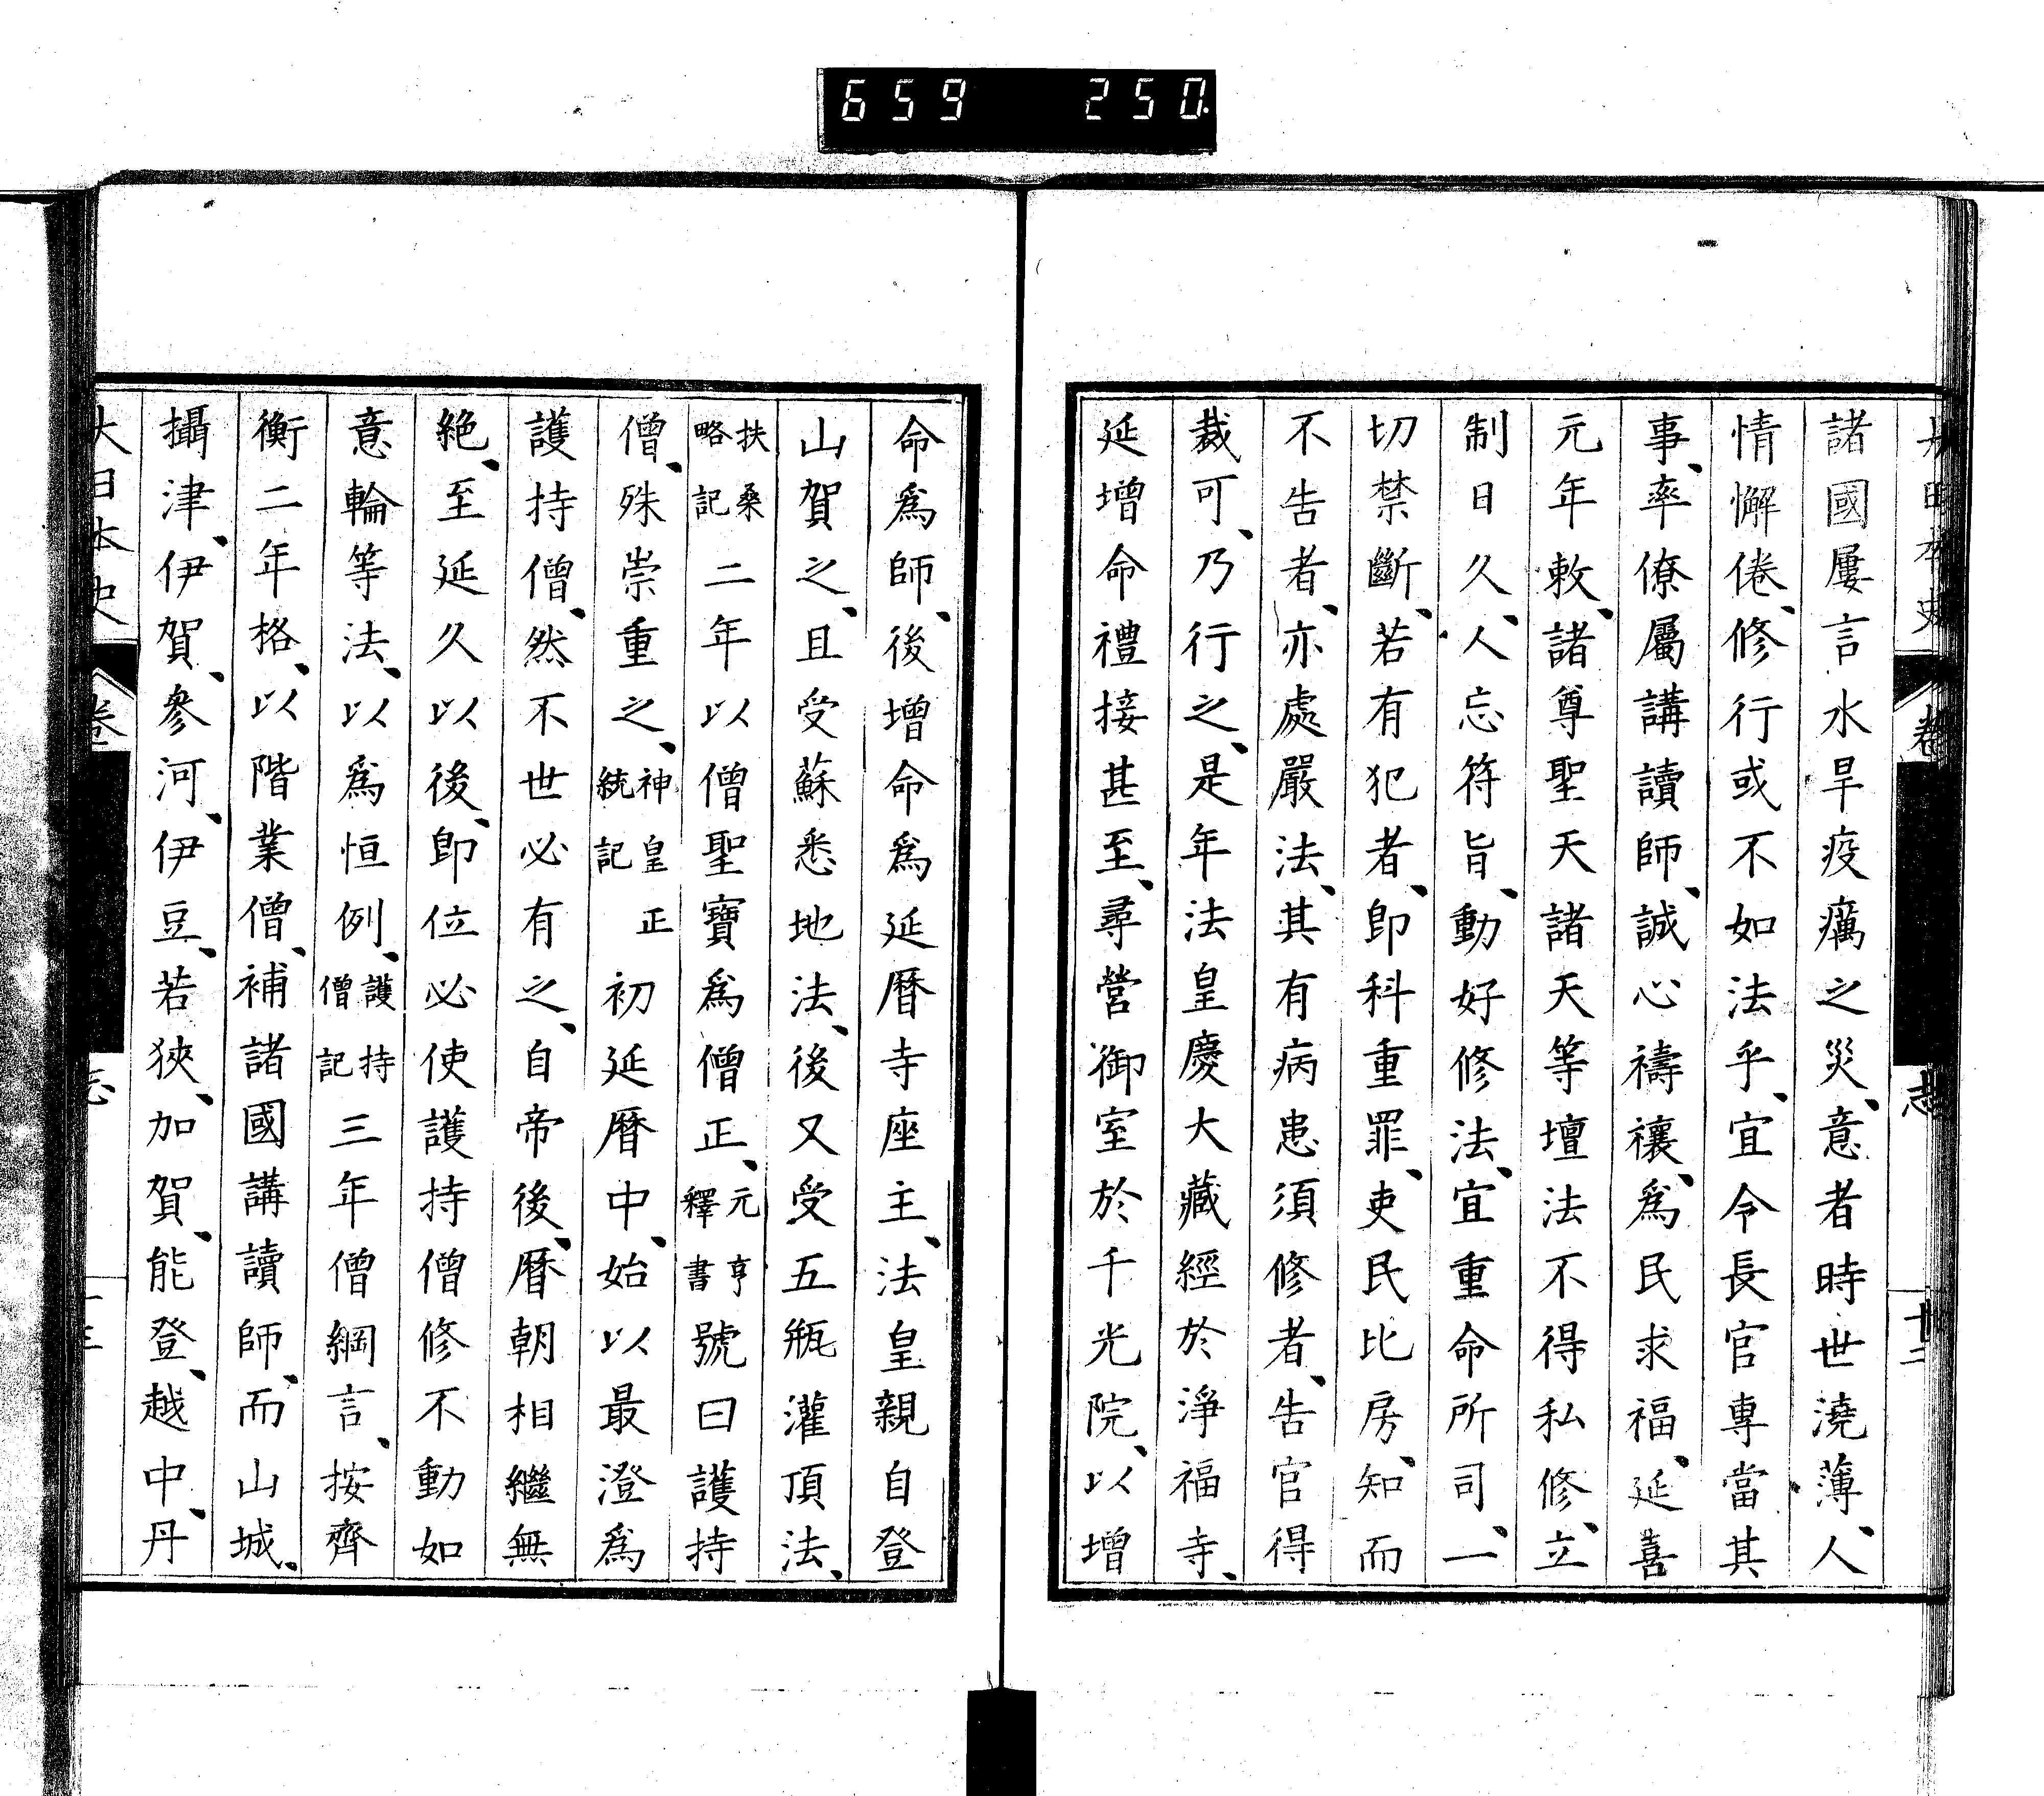 659 250
大日本史 卷 志 廿二
諸國屢言水旱疫癘之災、意者時世澆薄、人
情懈倦、修行或不如法乎、宜令長官專當其
事、率僚屬講讀師、誠心禱禳、爲民求福、延喜
元年敕、諸尊聖天諸天等壇法不得私修、立
制日久、人忘符旨、動好修法、宜重命所司、一
切禁斷、若有犯者、即科重罪、吏民比房、知而
不告者、亦處嚴法、其有病患須修者、告官得
裁可、乃行之、是年法皇慶大藏經於淨福寺、
延增命禮接甚至、尋營御室於千光院、以增
命爲師、後增命爲延曆寺座主、法皇親自登
山賀之、且受蘇悉地法、後又受五瓶灌頂法、
扶桑略記二年以僧聖寶爲僧正、元亨釋書號曰護持
僧、殊崇重之、神皇正統記初延曆中、始以最澄爲
護持僧、然不世必有之、自帝後、曆朝相繼無
絶、至延久以後、即位必使護持僧修不動如
意輪等法、以爲恒例、護持僧記三年僧綱言、按齊
衡二年格、以階業僧、補諸國講讀師、而山城、
攝津、伊賀、參河、伊豆、若狹、加賀、能登、越中、丹
大日本史 卷 志